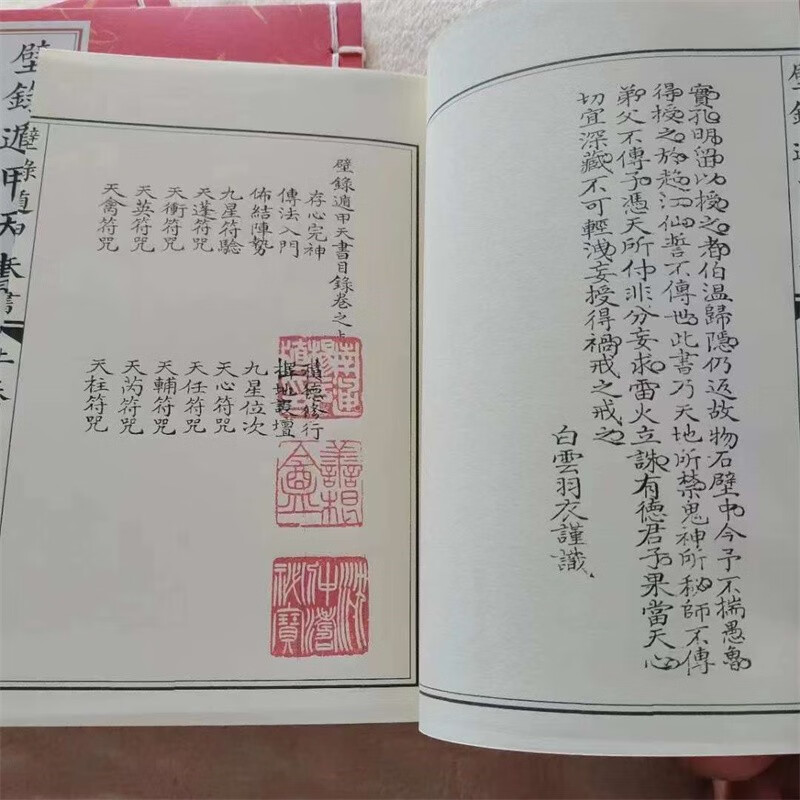 壁錄遁
實孔明留以授之者伯溫歸隱仍返故物石壁中今予不揣愚魯
得授之於趙江仙誓不傳也此書乃天地所禁鬼神所秘師不傳
弟父不傳子憑天所付非分妄求雷火立誅有德君子果當天心
切宜深藏不可輕洩妄授得禍戒之戒之
白雲羽衣謹識
壁錄遁甲天書目錄卷之上
存心完神 積德修行
傳法入門 擇地 壇
佈結陣勢 九星位次
九星符驗 天心符咒
天蓬符咒 天任符咒
天衝符咒 天輔符咒
天英符咒 天芮符咒
天禽符咒 天柱符咒
沈仲濤祕寶
壁錄遁甲天書